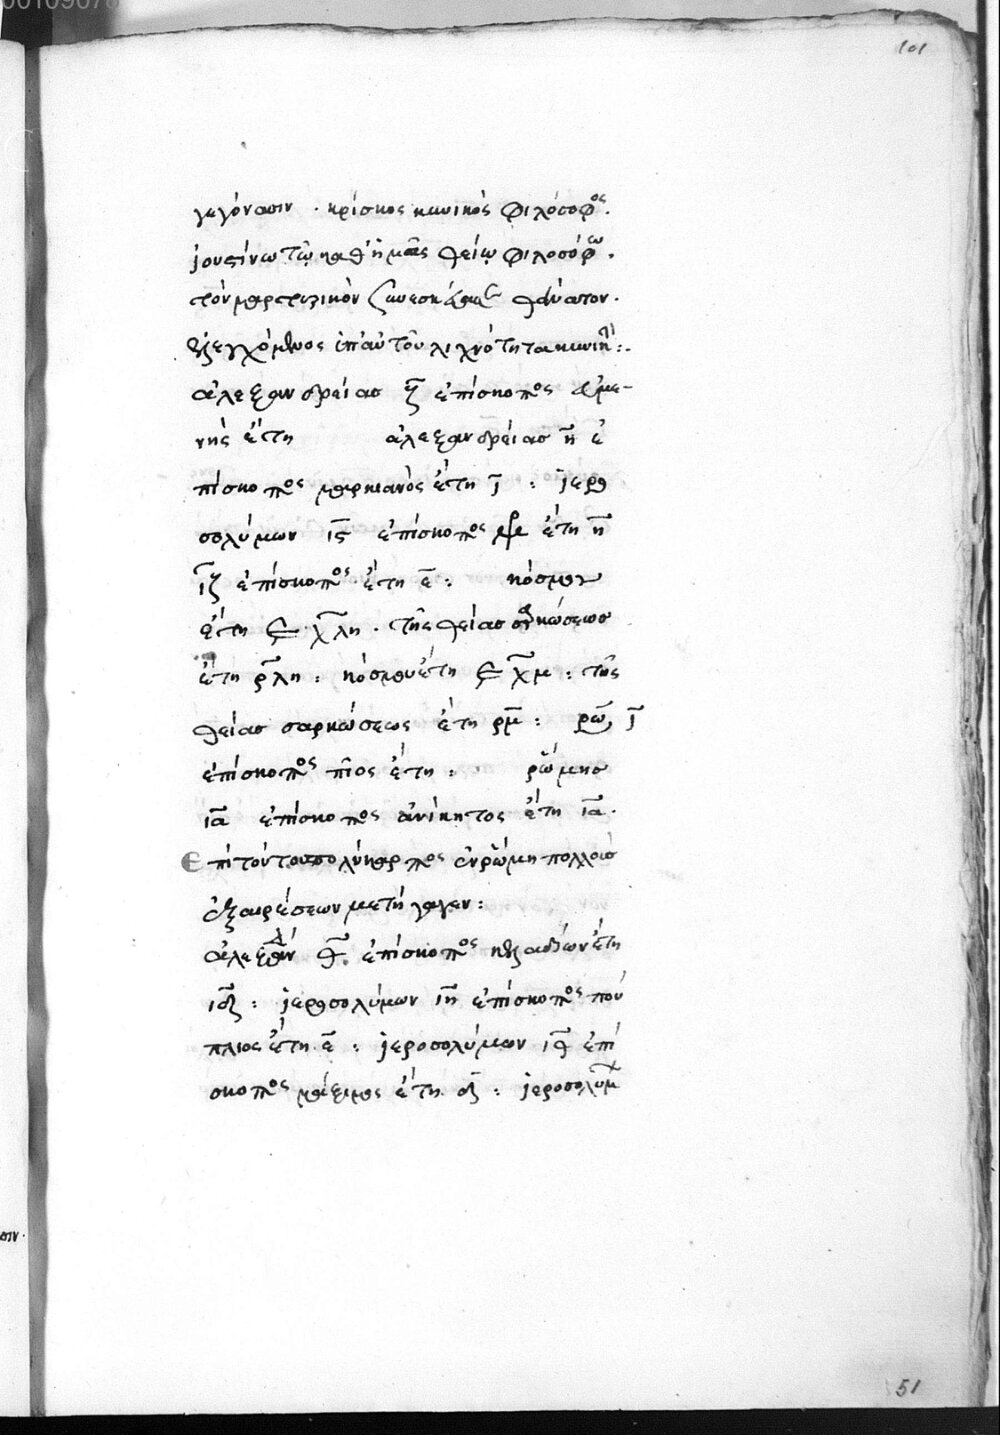 101
γεγόνασιν . κρίσκος κυνικὸς φιλόσοφος .
ἰουστίνω τῶ καθ' ἡμᾶς θείῳ φιλοσόφω .
τὸν μαρτυρικὸν συνεσκεύασε θάνατον .
ἐλεγχόμενος ὑπ' αὐτοῦ λιχνότητα κυνικὴν :
ἀλεξανδρείας ζ̅ ἐπίσκοπος εὐμε-
νὴς ἔτη ἀλεξανδρείας η̅ ἐ
πίσκοπος μαρκιανὸς ἔτη ι̅ : ἱερο
σολύμων ις̅ ἐπίσκοπος ἔτη η̅
ιζ̅ ἐπίσκοπος ἔτη ε̅ : κόσμου
ἔτη ͵ε χ̅λη . τῆς θείας σαρκώσεως
ἔτη ρ̅λη : κόσμου ἔτη ͵ε χ̅μ : τῆς
θείας σαρκώσεως ἔτη ρμ̅ : ρω̅, ι̅
ἐπίσκοπος πῖος ἔτη : ῥώμης
ια̅ ἐπίσκοπος ἀνίκητος ἔτη ια̅ .
Ἐπὶ τούτου πολύκαρπος ἐν ῥώμη πολλοὺς
ἐξ αἱρέσεων μετήγαγεν :
ἀλεξανδ θ̅ ἐπίσκοπος κελαδίων ἔτη
ιδ̅ : ἱεροσολύμων ιη̅ ἐπίσκοπος πού
πλιος ἔτη ε̅ : ἱεροσολύμων ιθ̅ ἐπί
σκοπος μάξιμος ἔτη δ̅ : ἱεροσολύμ
51